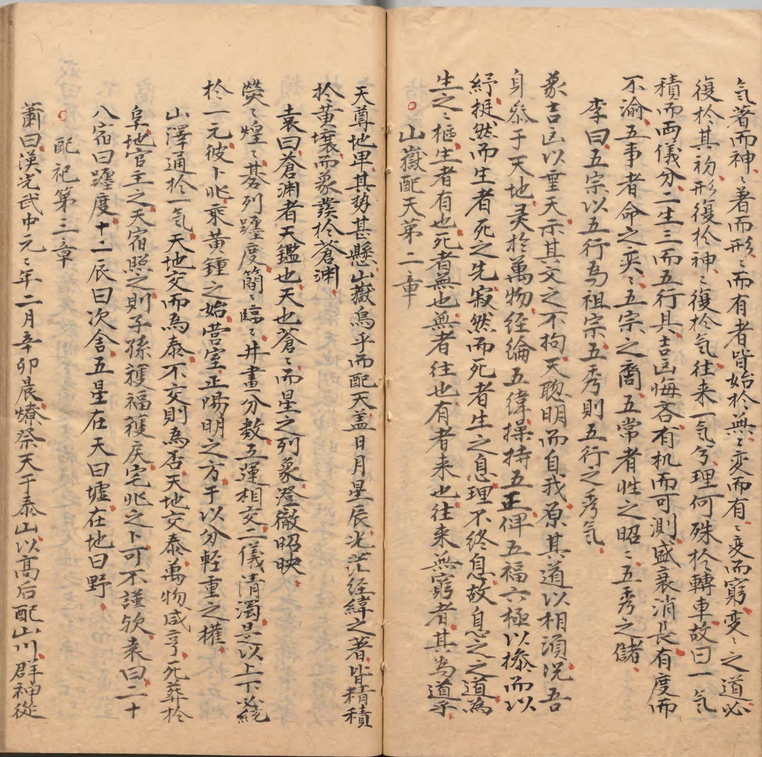 气著而神〻著而形〻而有者皆始於無〻变而有〻变而窮变〻之道必
復於其初形復於神〻復於气往来一気兮理何殊於轉車故曰一気
積而両儀分二生三而五行具吉凶悔吝有机而可測盛衰消長有度而
不渝五事者命之爽〻五宗之裔五常者性之昭〻五秀之儲
李曰五宗以五行為祖宗五秀則五行之秀気
象吉凶以垂天示其文之不拘天聡明而自我原其道以相須况吾
身叅于天地灵於萬物経綸五偉操持五正俾五福六極以捺而以
紓挺然而生者死之先寂然而死者生之息理不終息故息之之道為
生之〻樞生者有也死者無也無者往也有者来也往来無窮者其為道乎
○山嶽配天第二章
天尊地卑其势甚懸山嶽烏乎而配天盖日月星辰光茫経緯之著皆精積
於黄壤而象發於蒼渊
袁曰蒼渊者天鑑也天也蒼〻而星之列象澄徹昭映
熒〻煌〻碁列躔度簡〻臨〻井畫分数五運相交二儀清濁是以上下必統
於一元彼卜兆乘黄鍾之始营室正陽明之方于以分軽重之權
山澤通於一気天地交而為泰不交則為否天地交泰萬物咸亨死葬於
阜地官主之天宿照之則子孫獲福獲戾宅兆之卜可不謹欤袁曰二十
八宿曰躔度十二辰曰次舍五星在天曰墟在地曰野
○配祀第三章
蕭曰漢光武中元〻年二月辛卯晨燎祭天于泰山以高后配山川群神従